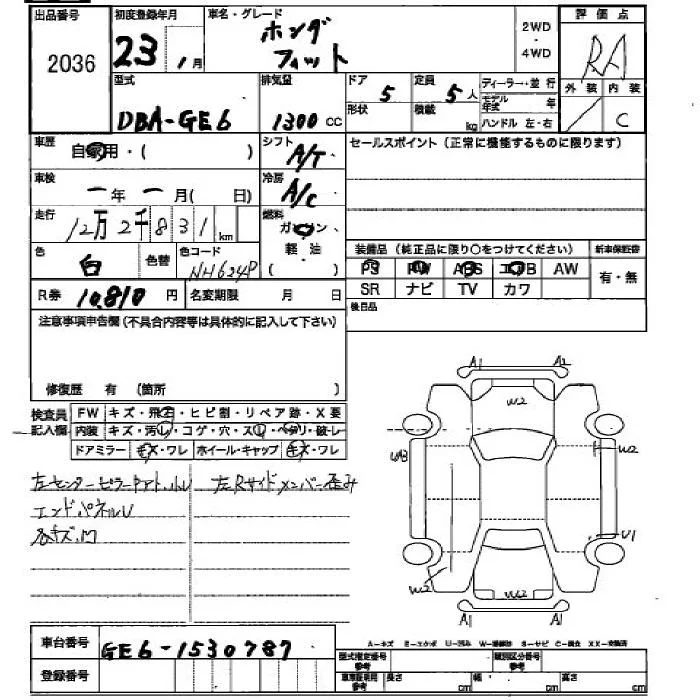 出品番号 初度登録年月 車名・グレード 2WD・4WD 評価点
2036 23年 1月 ホンダ フィット RA
外装 内装
C
型式 DBA-GE6 排気量 1300 CC
ドア 5 定員 5人 ディーラー・並行
形状 積載 kg モデル年式 年
ハンドル 左・右
車歴 自家用・( )
シフト A/T
セールスポイント(正常に機能するものに限ります)
車検 一年一月( 日)
冷房 A/C
走行 12万2千831 km
燃料 ガソリン
軽油
( )
色 白 色替 色コード NH624P
装備品(純正品に限り○をつけてください) 新車保証書
PS PW ABS エアB AW 有・無
SR ナビ TV カワ
R券 10,810円 名変期限 月 日
後日品
注意事項申告欄(不具合内容等は具体的に記入して下さい)
修復歴 有 (箇所 )
検査員記入欄 FW キズ・飛石・ヒビ割・リペア跡・X要
内装 キズ・汚レ・コゲ・穴・スレ・ヘタリ・破レ
ドアミラー キズ・ワレ ホイール・キャップ キズ・ワレ
左センターピラーアウトルU 左Rサイドメンバー歪み
エンドパネルU
各キズ.凹
A1 A2
W2
UA3 W2
U1
W2 W2
A1 A1
車台番号 GE6-1530787
登録番号
A-キズ E-エクボ U-凹み W-補修跡 S-サビ C-腐食 XX-交換済
型式指定番号 参考 類別区分番号 参考
車車検証 参考 長さ cm 幅 cm 高さ cm